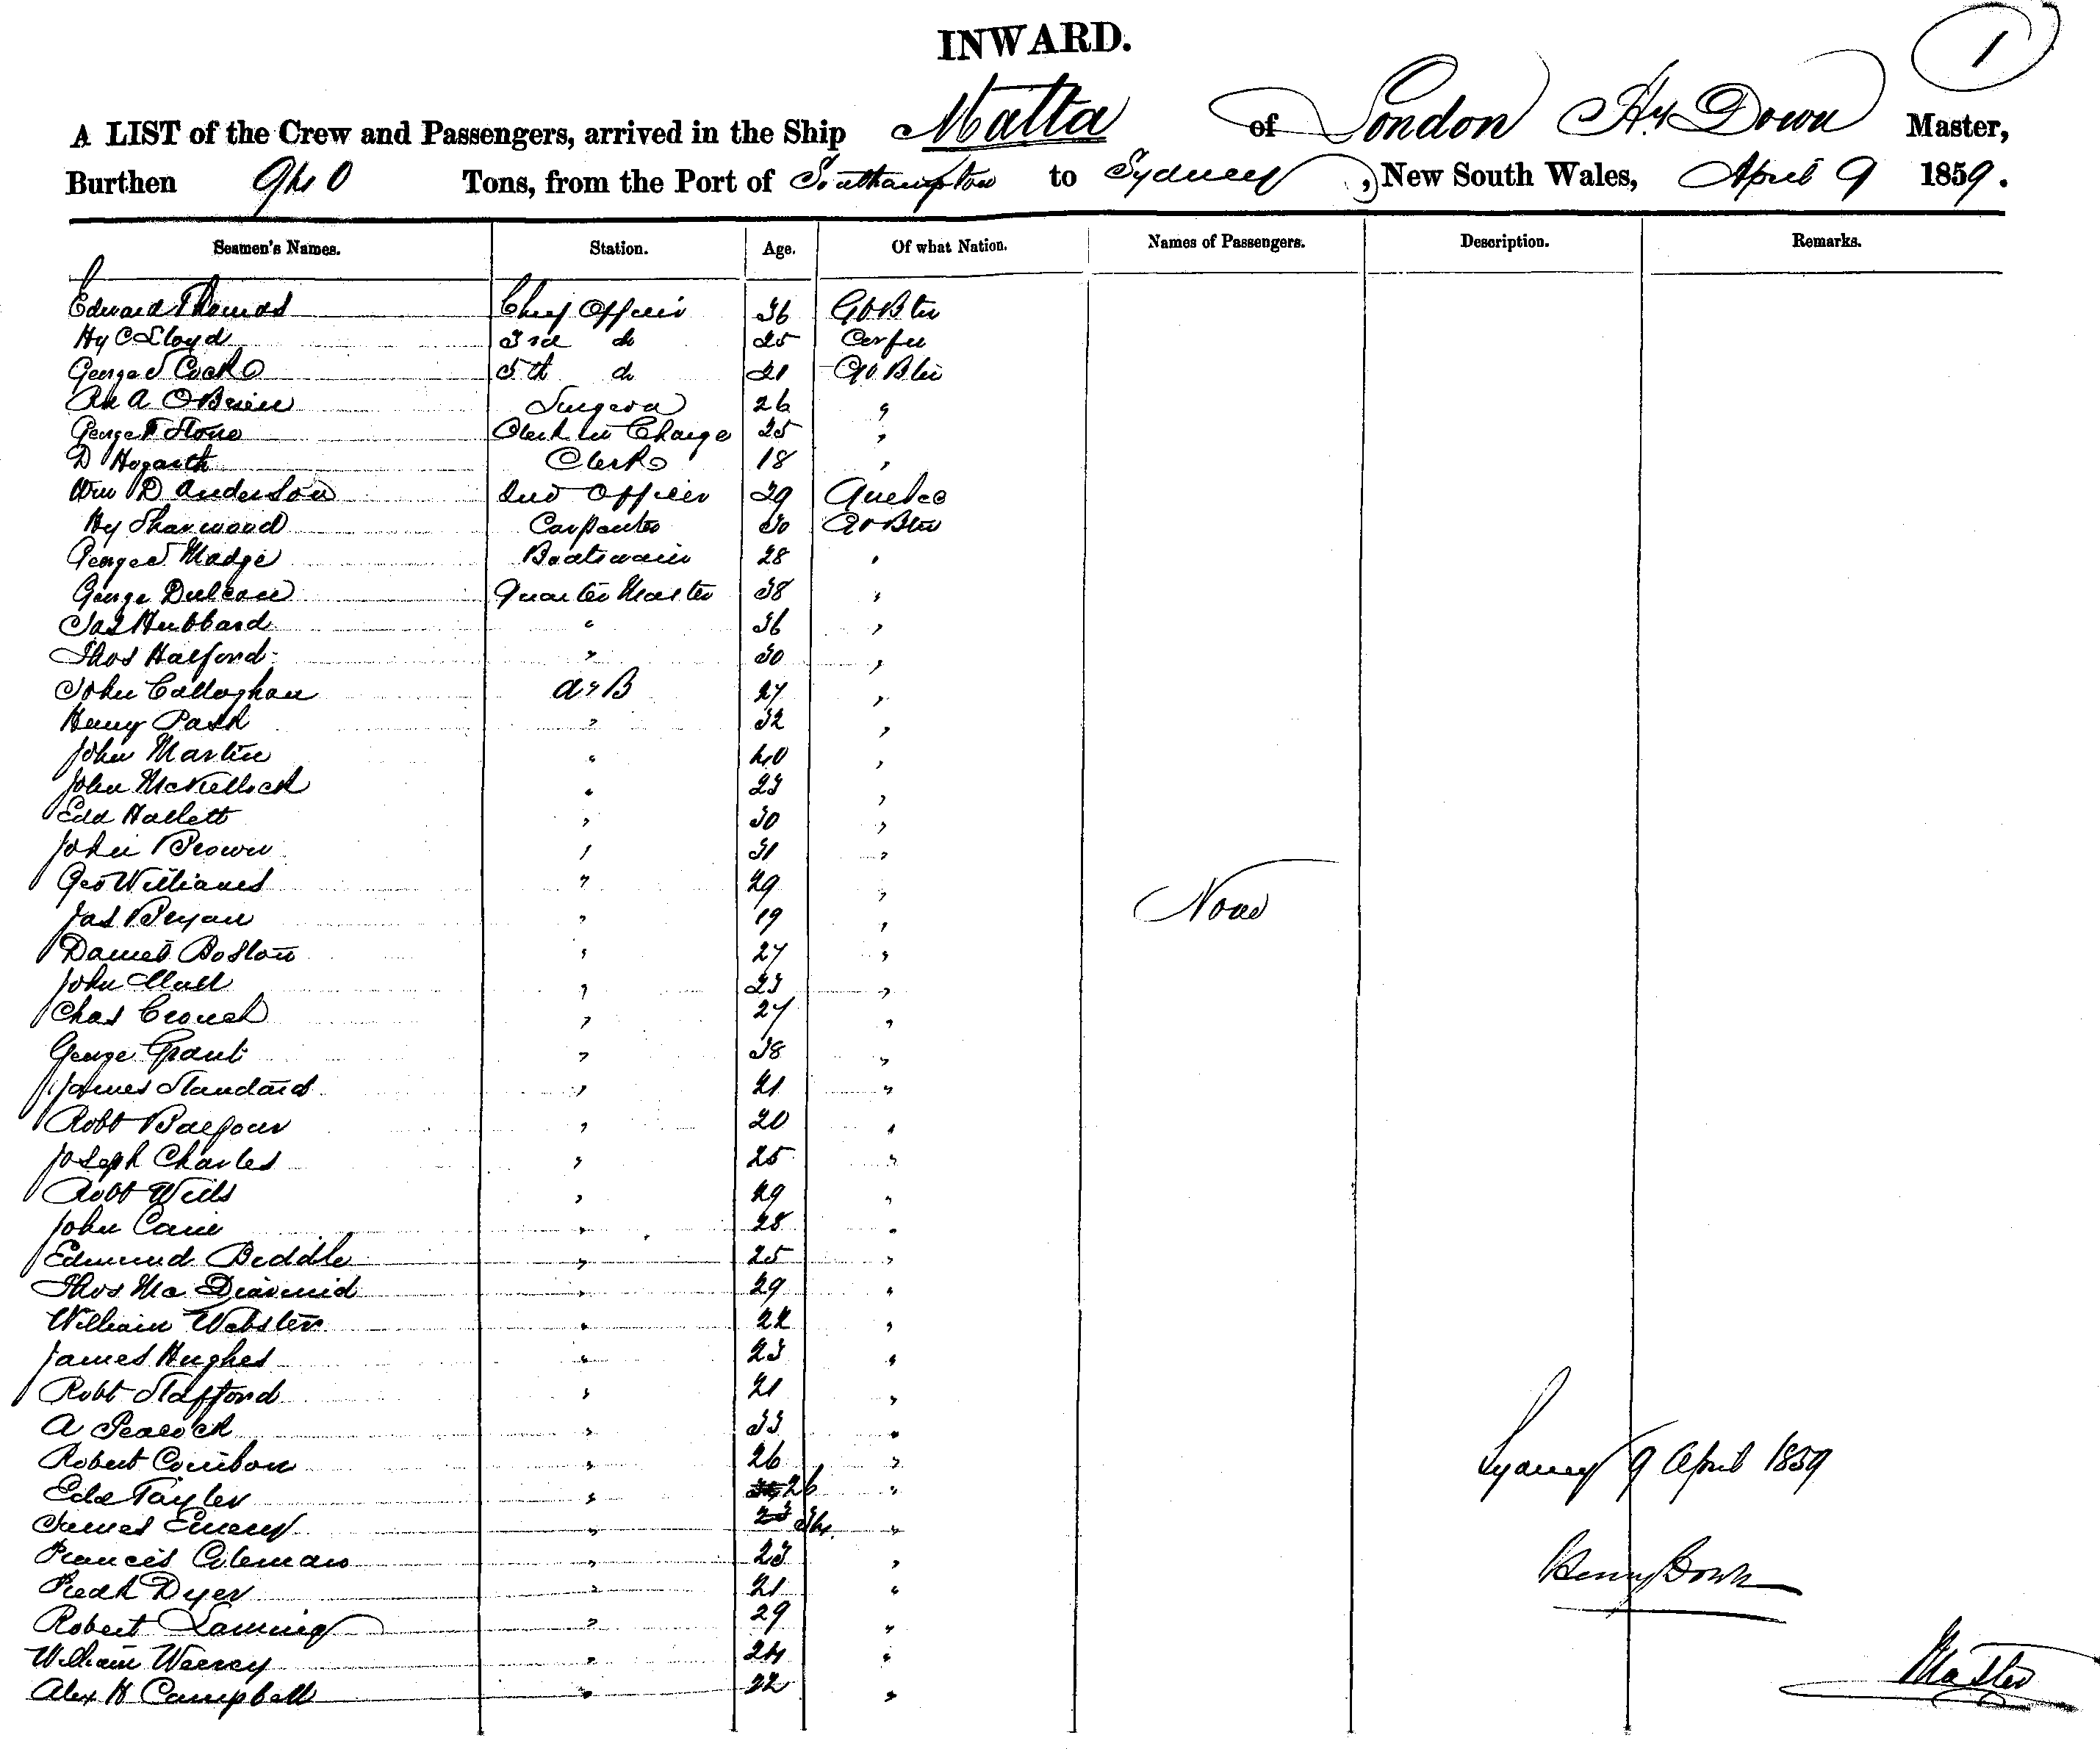 1
INWARD.
A LIST of the Crew and Passengers, arrived in the Ship Malta of London Hy Down Master,
Burthen 940 Tons, from the Port of Southampton to Sydney, New South Wales, April 9 1859.
Seamen's Names. Station. Age. Of what Nation. Names of Passengers. Description. Remarks.
Edward Thomas Chief Officer 36 Gt Btn
Hy C Lloyd 3rd do 25 Corfu
George S Cock 5th do 21 Gt Btn
A OBrien Surgeon 26 "
George Stone Clerk in Charge 25 "
D Hogarth Clerk 18 "
Wm D Anderson 2nd Officer 29 Quebec
Hy Sharwood Carpenter 30 Gt Btn
George Madge Boatswain 28 "
George Duncan Quarter Master 38 "
Jas Hubbard " 36 "
Thos Halford " 30 "
John Callaghan A B 27 "
Henry Pask " 32 "
John Martin " 40 "
John McKullock " 23 "
Edd Hallett " 30 "
John Brown " 31 "
Geo Williams " 29 "
None
Jas Bryan " 19 "
Daniel Boston " 27 "
John " 23 "
Chas Crouch " 27 "
George Grant " 38 "
James Standard " 21 "
Robt Balfour " 20 "
Joseph Charles " 25 "
Robt Wills " 29 "
John Cane " 28 "
Edmund Beddle " 25 "
Thos Mc Diarmid " 29 "
William Webster " 22 "
James Hughes " 23 "
Robt Stafford " 21 "
A Peacock " 33 "
Robert " 26 "
Sydney 9 April 1859
Edd Tayler " 26 "
James Emery " 34 "
Francis Coleman " 23 "
Henry Down
Fredk Dyer " 21 "
Robert Laming " 29 "
William " 24 "
Master
Alex H Campbell " 22 "